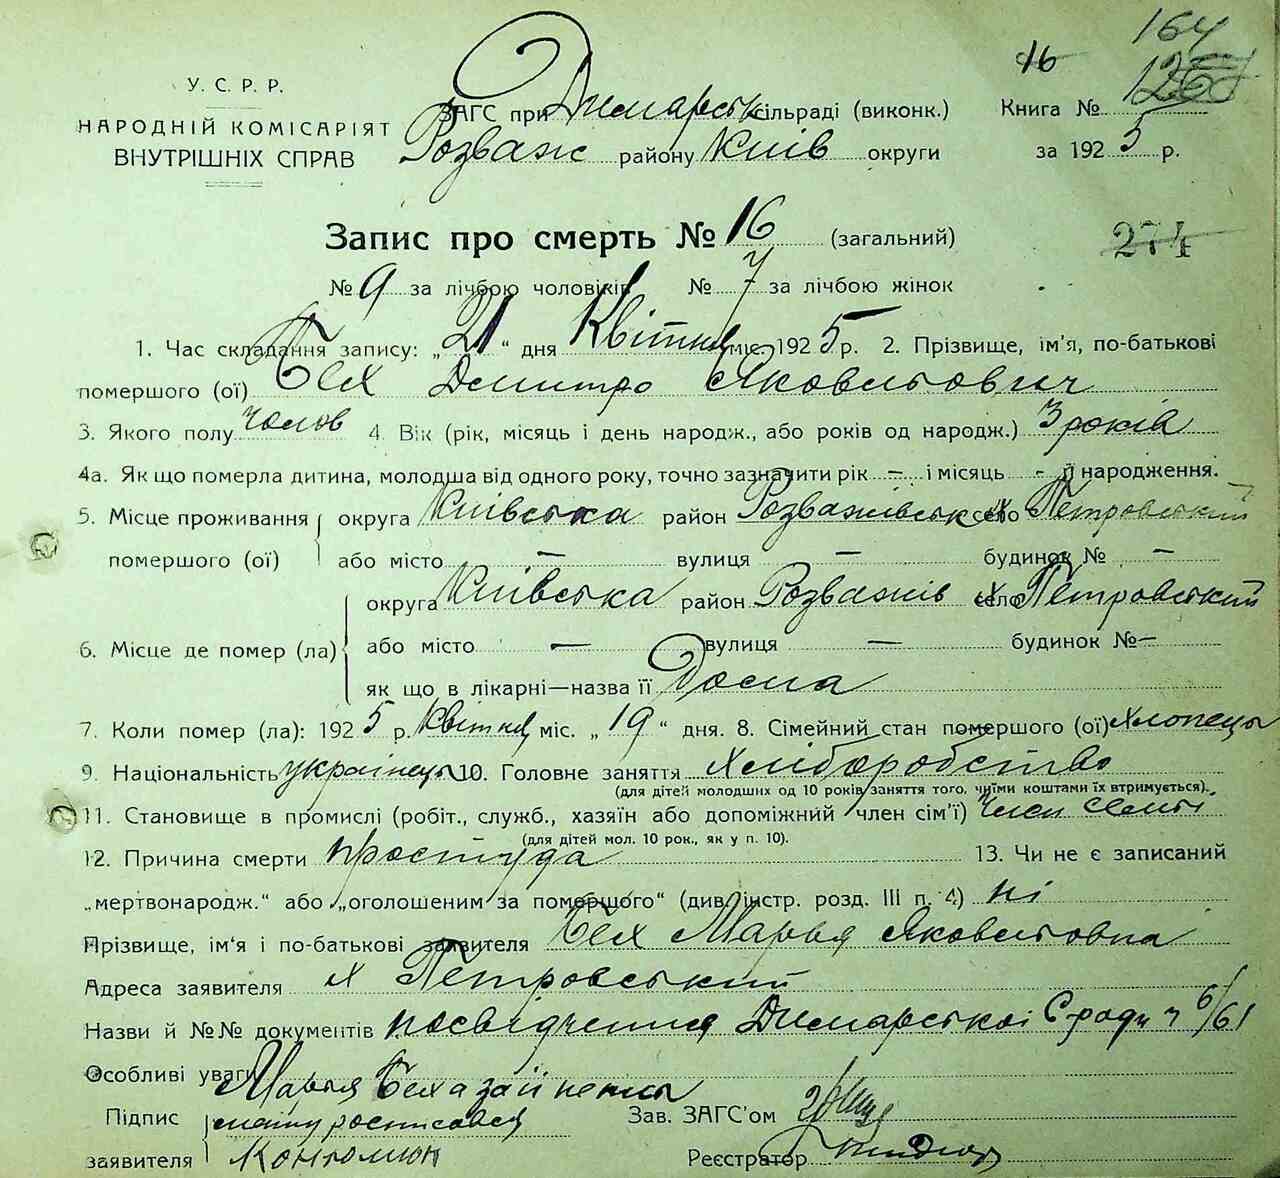 164
16 126
У. С. Р. Р.
НАРОДНІЙ КОМІСАРІЯТ
ВНУТРІШНІХ СПРАВ
ЗАГС при Димарськ сільраді (виконк.) Книга №
Розваж району Київ округи за 1925 р.
Запис про смерть № 16 (загальний) 274
№ 9 за лічбою чоловіків № 7 за лічбою жінок
1. Час складання запису: „21“ дня Квітня міс. 1925 р. 2. Прізвище, ім’я, по-батькові
помершого (ої) Бех Дмитро Яковлтович
3. Якого полу чолов 4. Вік (рік, місяць і день народж., або років од народж.) 3 років
4а. Як що померла дитина, молодша від одного року, точно зазначити рік — і місяць - її народження.
5. Місце проживання округа Київська район Розважівськ село х Петровський
помершого (ої) або місто — вулиця — будинок № —
округа Київська район Розважів село х Петровський
6. Місце де помер (ла) або місто — вулиця — будинок № —
як що в лікарні—назва її Дома
7. Коли помер (ла): 1925 р. Квітня міс. „19“ дня. 8. Сімейний стан помершого (ої) хлопець
9. Національність українець 10. Головне заняття хліборобство
(для дітей молодших од 10 років заняття того, чиїми коштами їх втримується).
11. Становище в промислі (робіт., служб., хазяїн або допоміжний член сім’ї) Член семї
(для дітей мол. 10 рок., як у п. 10).
12. Причина смерти простуда 13. Чи не є записаний
„мертвонародж.“ або „оголошеним за помершого“ (див. інстр. розд. III п. 4) ні
Прізвище, ім‘я і по-батькові заявителя Бех Марья Яковлтовна
Адреса заявителя х Петровський
Назви й №№ документів посвідчення Димарської С ради ч 6/61
Особливі уваги Марья Беха за її неписм
Підпис росписався
заявителя
Зав. ЗАГС’ом
Реєстратор